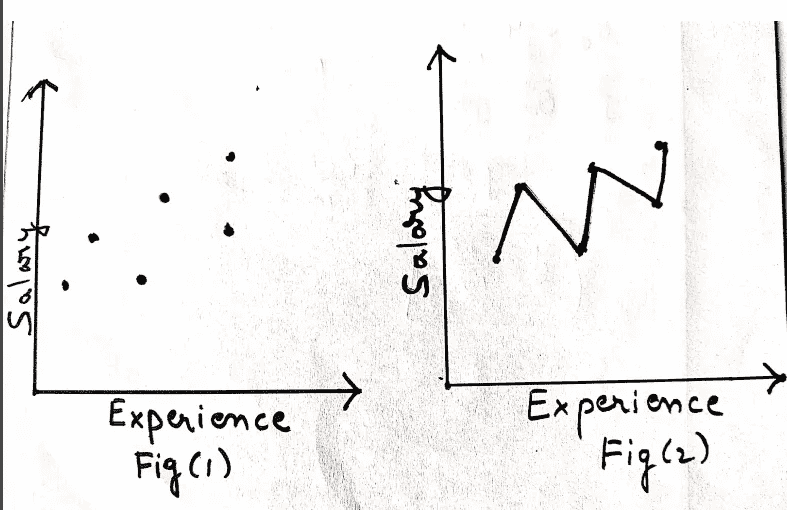 Salary
Experience
Fig(1)
Salary
Experience
Fig(2)